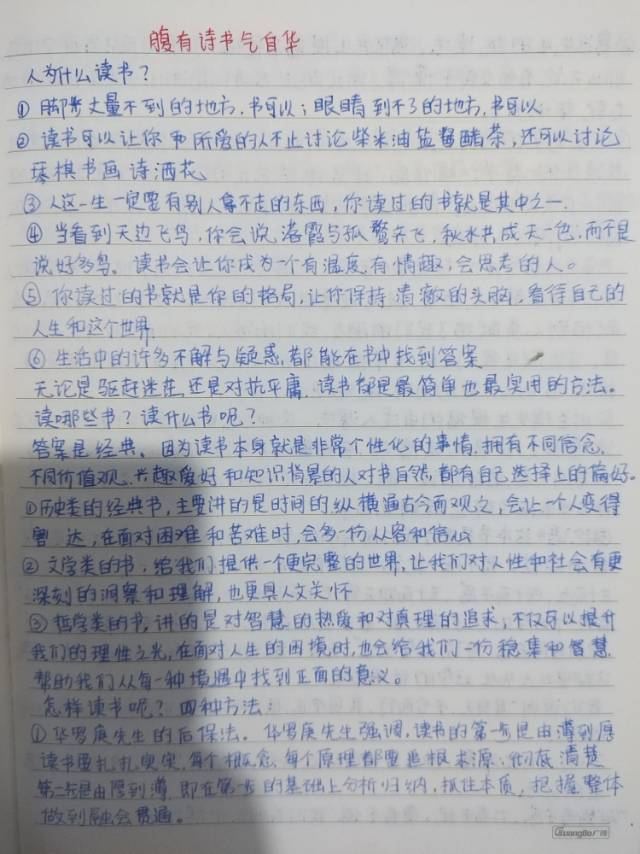 腹有诗书气自华
人为什么读书？
①脚步丈量不到的地方,书可以；眼睛到不了的地方,书可以
②读书可以让你和所爱的人不止讨论柴米油盐酱醋茶,还可以讨论
琴棋书画诗酒花
③人这一生一定要有别人拿不走的东西,你读过的书就是其中之一.
④当看到天边飞鸟,你会说,落霞与孤鹜齐飞,秋水共成天一色,而不是
说好多鸟。读书会让你成为一个有温度,有情趣,会思考的人。
⑤你读过的书就是你的格局,让你保持清澈的头脑,看待自己的
人生和这个世界
⑥生活中的许多不解与疑惑,都能在书中找到答案
无论是驱赶迷茫,还是对抗平庸,读书都是最简单也最实用的方法。
读哪些书？读什么书呢？
答案是经典。因为读书本身就是非常个性化的事情,拥有不同信念,
不同价值观,兴趣爱好和知识背景的人对书自然都有自己选择上的偏好。
①历史类的经典书,主要讲的是时间的纵横通古今而观之,会让一个人变得
达,在面对困难和苦难时,会多一份从容和信心
②文学类的书,给我们提供一个更完整的世界,让我们对人性和社会有更
深刻的洞察和理解,也更具人文关怀
③哲学类的书,讲的是对智慧的热爱和对真理的追求,不仅可以提升
我们的理性之光,在面对人生的困境时,也会给我们一份稳集和智慧
帮助我们从每一种境遇中找到正面的意义。
怎样读书呢？四种方法：
①华罗庚先生的后保法。华罗庚先生强调,读书的第一步是由薄到厚
读书要扎扎实实,每个概念、每个原理都要追根求源,彻底清楚
第二步是由厚到薄,即在第一步的基础上分析归纳,抓住本质,把握整体
做到融会贯通。
GuangBo广博